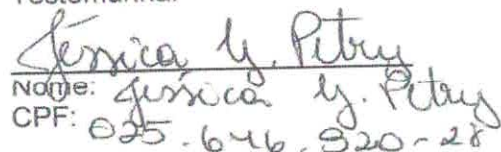 Testemunha:
Jéssica Y. Petry
Nome: Jéssica Y. Petry
CPF: 025.646.920-28